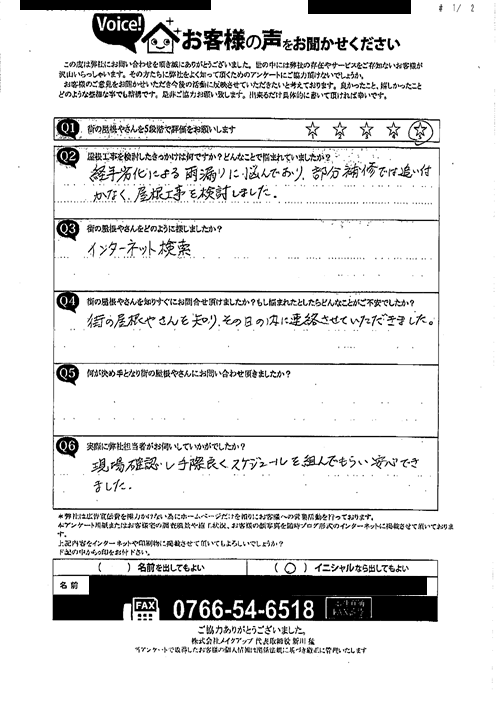 # 1/ 2
Voice!
お客様の声をお聞かせください
この度は弊社にお問い合わせを頂き誠にありがとうございました。世の中には弊社の存在やサービスをご存知ないお客様が
沢山いらっしゃいます。その方たちに弊社をよく知って頂くためのアンケートにご協力頂けないでしょうか。
お客様のご意見をお聞かせいただき今後の活動に反映させていただきたいと考えております。良かったこと、嬉しかったこと
どのような些細な事でも結構です。是非ご協力お願い致します。出来るだけ具体的に書いて頂ければ幸いです。
Q1 街の屋根やさんを5段階で評価をお願いします
Q2 屋根工事を検討したきっかけは何ですか?どんなことで悩まれていましたか?
経年劣化による雨漏りに悩んでおり、部分補修では追い付
かなく、屋根工事を検討しました。
Q3 街の屋根やさんをどのように探しましたか?
インターネット検索
Q4 街の屋根やさんを知りすぐにお問合せ頂けましたか?もし悩まれたとしたらどんなことがご不安でしたか?
街の屋根やさんを知り、その日の内に連絡させていただきました。
Q5 何が決め手となり街の屋根やさんにお問い合わせ頂きましたか?
Q6 実際に弊社担当者がお伺いしていかがでしたか?
現場確認し手際良くスケジュールを組んでもらい安心でき
ました.
*弊社は広告宣伝費を極力かけない為にホームページだけを頼りにお客様への営業活動を行っております。
上記内容をインターネットや印刷物に掲載させて頂いてもよろしいでしょうか?
下記の中から○印をお付下さい。
( ) 名前を出してもよい
( ○ ) イニシャルなら出してもよい
名前
FAX 0766-54-6518
ご協力ありがとうございました。
株式会社メイクアップ 代表取締役 新川 猛
当アンケートで取得したお客様の個人情報は関係法規に基づき厳正に管理いたします